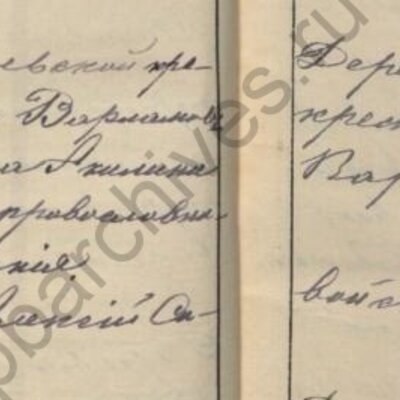 евской кре-
Варламовъ
на Акилина
православна-
нія
Алексій Си-
Дер
крест
Вар
войс
spbarchives.ru